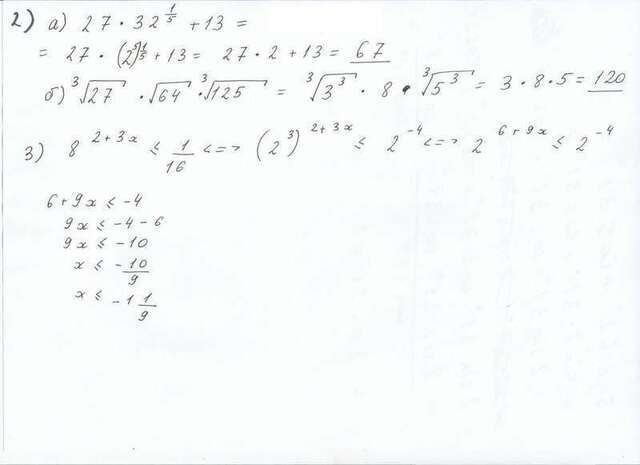 2) а) 27 · 32^(1/5) + 13 =
= 27 · (2^5)^(1/5) + 13 = 27 · 2 + 13 = 67
б) ∛27 · √64 · ∛125 = ∛3³ · 8 · ∛5³ = 3 · 8 · 5 = 120
3) 8^(2+3x) ≤ 1/16 <=> (2³)^(2+3x) ≤ 2^(-4) <=> 2^(6+9x) ≤ 2^(-4)
6 + 9x ≤ -4
9x ≤ -4 - 6
9x ≤ -10
x ≤ -10/9
x ≤ -1 1/9